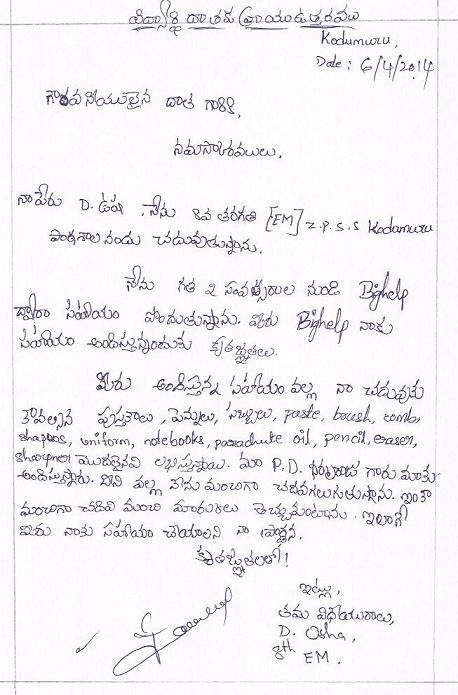 విద్యార్థి దాతకు వ్రాయు ఉత్తరము
Kodumuru,
Date: 6/4/2014
గౌరవనీయులైన దాత గారికి,
నమస్కారములు.
నా పేరు D. ఉష. నేను 8వ తరగతి [EM] Z.P.S.S Kodumuru
పాఠశాల నందు చదువుతున్నాను.
నేను గత 2 సంవత్సరాల నుండి Bighelp
ద్వారా సహాయం పొందుతున్నాను. మీరు Bighelp నాకు
సహాయం అందిస్తున్నందుకు కృతజ్ఞతలు.
మీరు అందిస్తున్న సహాయం వల్ల నా చదువుకు
కావల్సిన పుస్తకాలు, పెన్నులు, సబ్బులు, paste, brush, comb,
uniform, notebooks, oil, pencil, eraser,
మొదలైనవి లభిస్తున్నాయి. మా P.D. గారు మాకు
అందిస్తున్నారు. వీటి వల్ల నేను మంచిగా చదవగలుగుతున్నాను. ఇంకా
మంచిగా చదివి మంచి మార్కులు తెచ్చుకుంటాను. ఇలాగే
మీరు నాకు సహాయం చేయాలని నా ప్రార్థన.
కృతజ్ఞతలతో!
ఇట్లు,
తమ విధేయురాలు,
D. Usha,
8th EM.